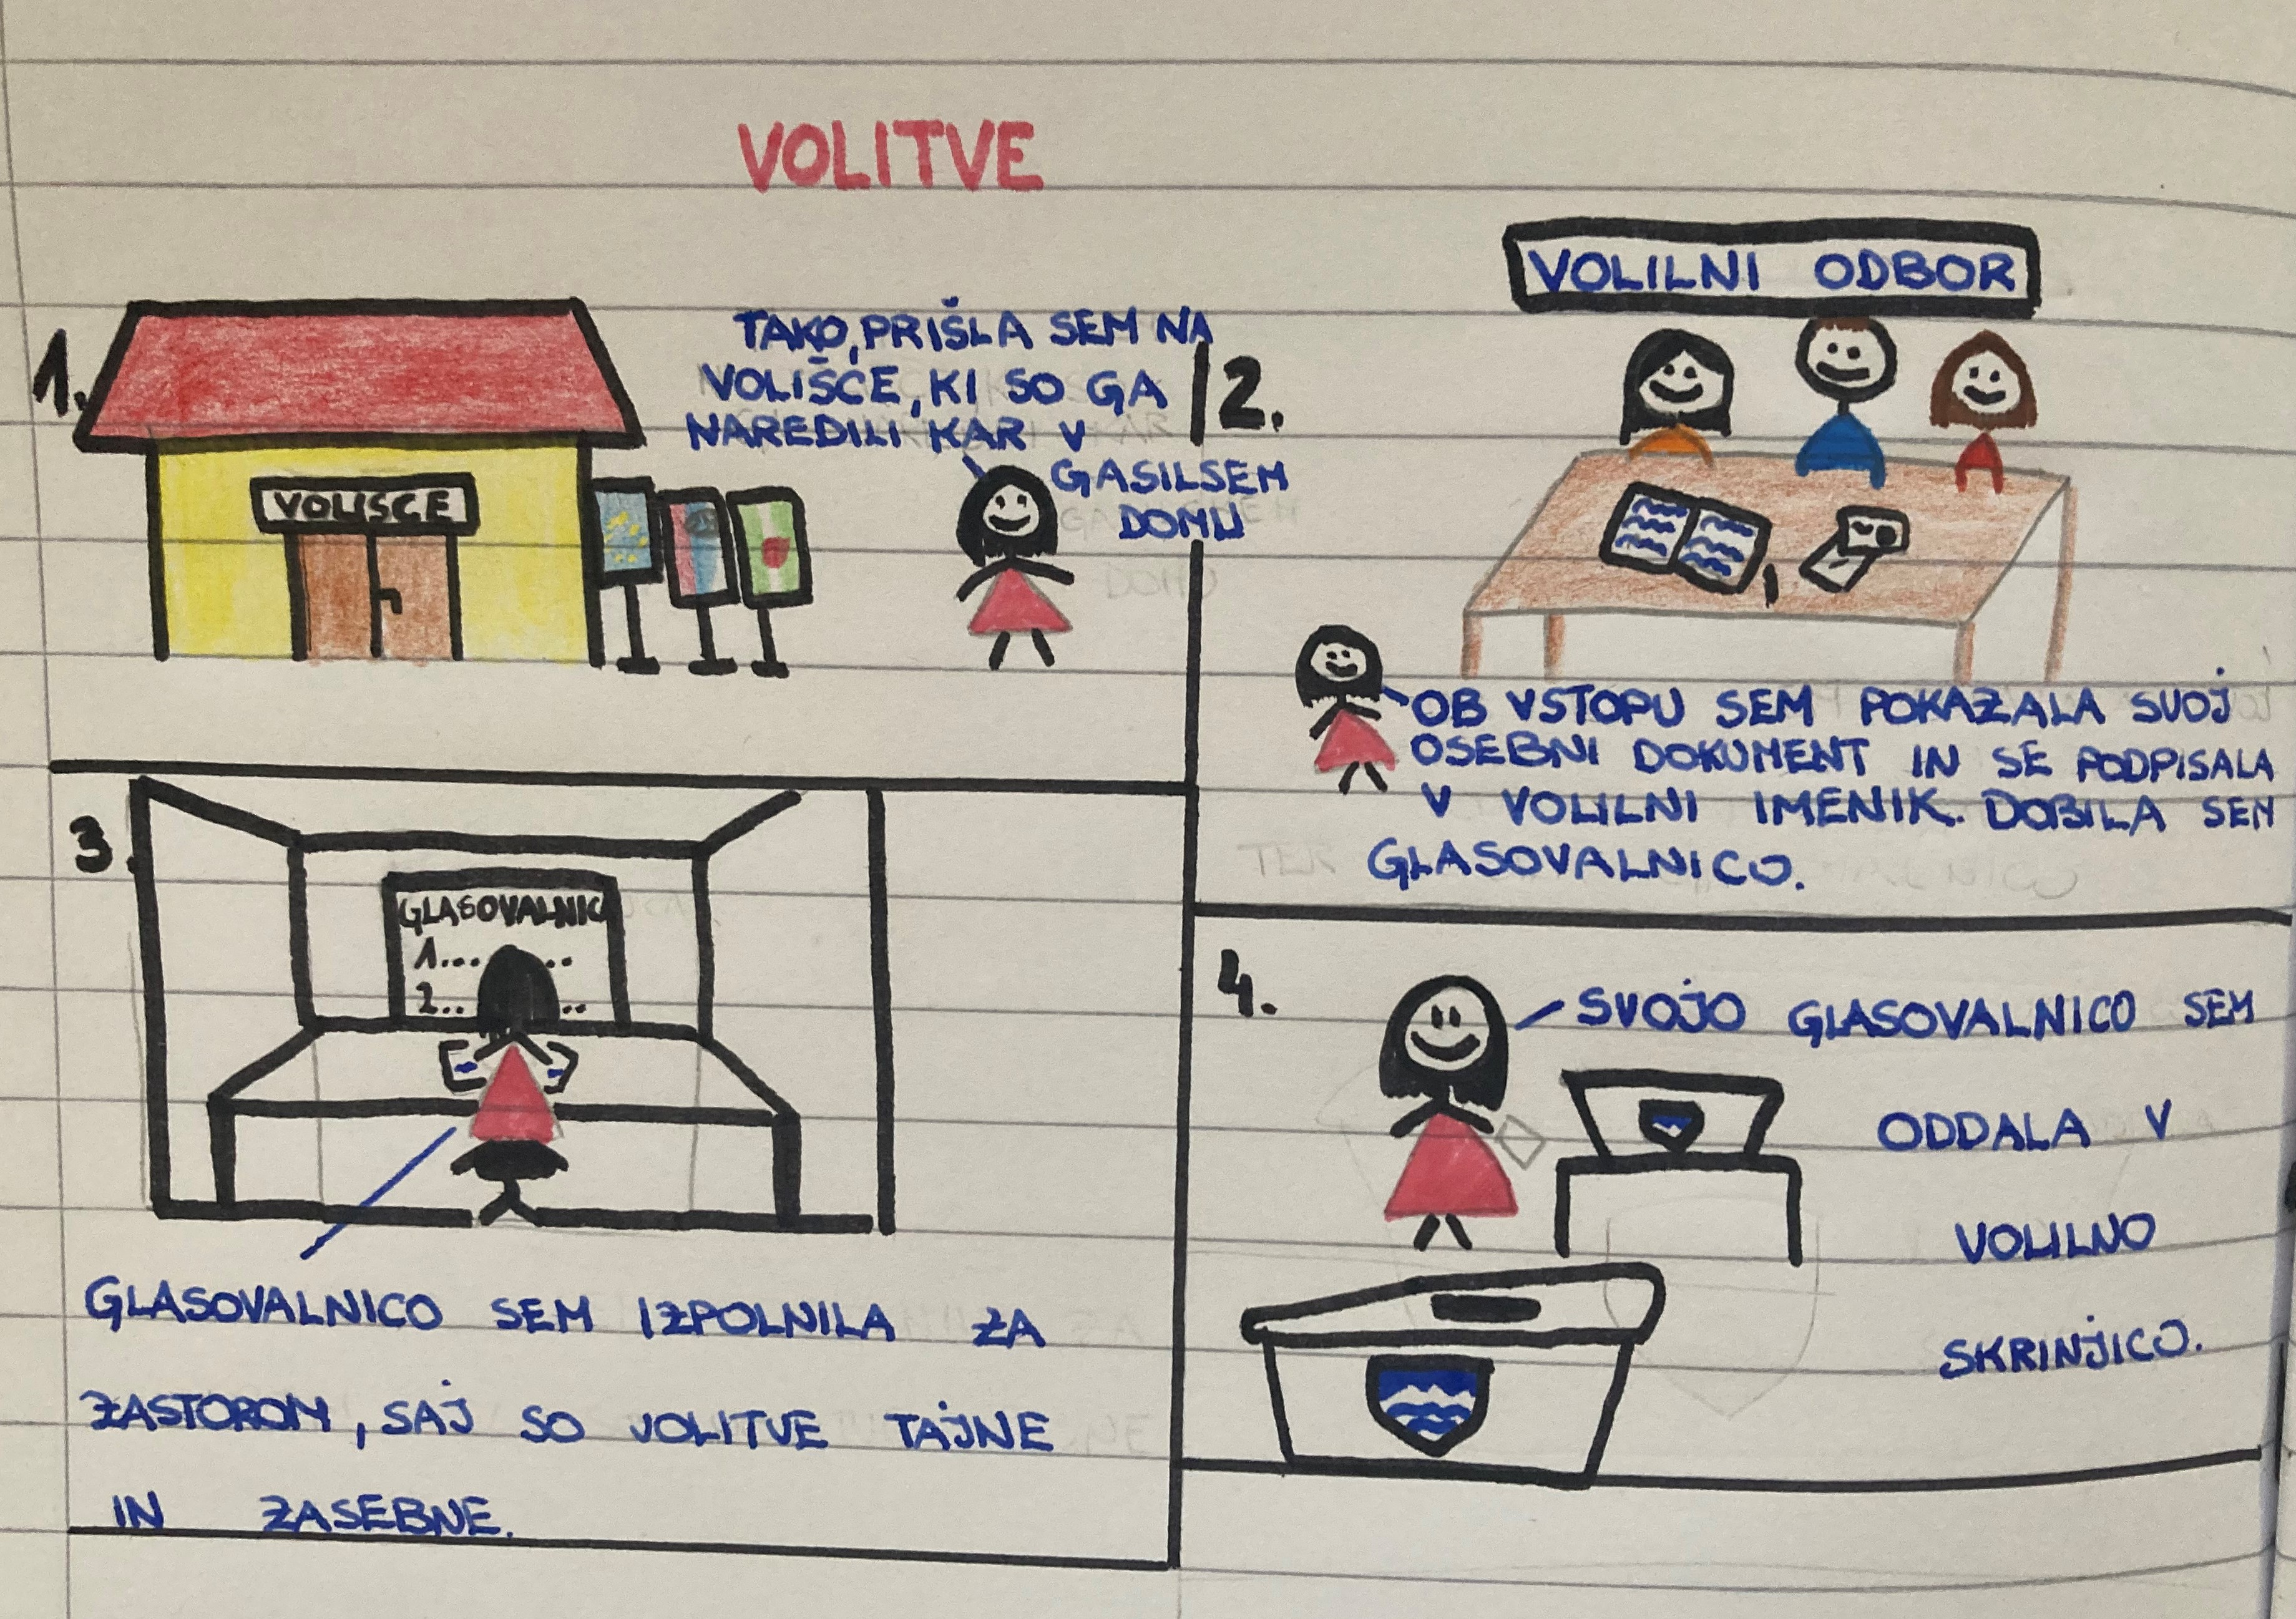 VOLITVE
1.
TAKO, PRIŠLA SEM NA
VOLIŠČE, KI SO GA
NAREDILI KAR V
GASILSEM
DOMU
VOLISCE
2.
VOLILNI ODBOR
OB VSTOPU SEM POKAZALA SVOJ
OSEBNI DOKUMENT IN SE PODPISALA
V VOLILNI IMENIK. DOBILA SEM
GLASOVALNICO.
3.
GLASOVALNIC
1... ..
2.. ..
GLASOVALNICO SEM IZPOLNILA ZA
ZASTOROM, SAJ SO VOLITVE TAJNE
IN ZASEBNE.
4.
SVOJO GLASOVALNICO SEM
ODDALA V
VOLILNO
SKRINJICO.